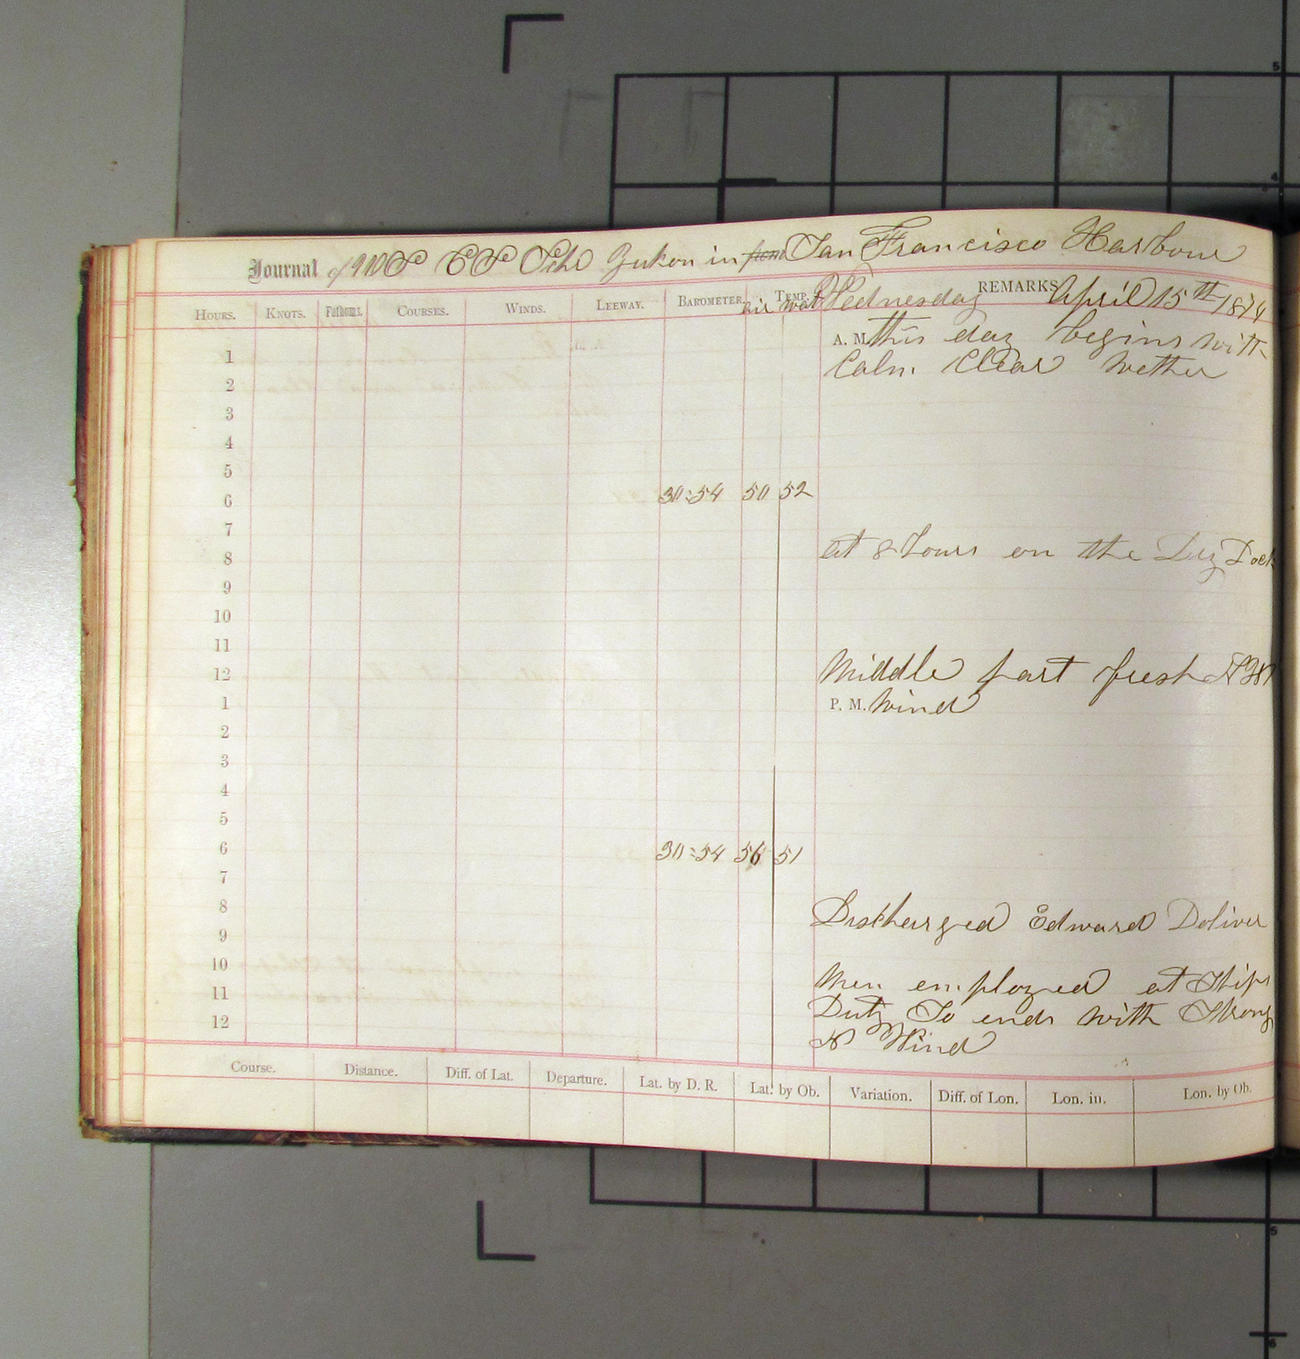 Journal of U S C S Schr Yukon in from San Francisco Harbour
HOURS. KNOTS. Fathoms. COURSES. WINDS. LEEWAY. BAROMETER. TEMP. air wat REMARKS Wednesday April 15th 1874
A. M. this day begins with
1
Calm Clear wether
2
3
4
5
6 30:54 50 52
7
8 at 8 hours on the Dry Dock
9
10
11
12 Middle part fresh NW
1 P. M. Wind
2
3
4
5
6 30:54 56 51
7
8 Discharged Edward Doliver
9
10 Men employed at Ships
11 Duty So ends with Strong
12 N Wind
Course. Distance. Diff. of Lat. Departure. Lat. by D. R. Lat. by Ob. Variation. Diff. of Lon. Lon. in. Lon. by Ob.